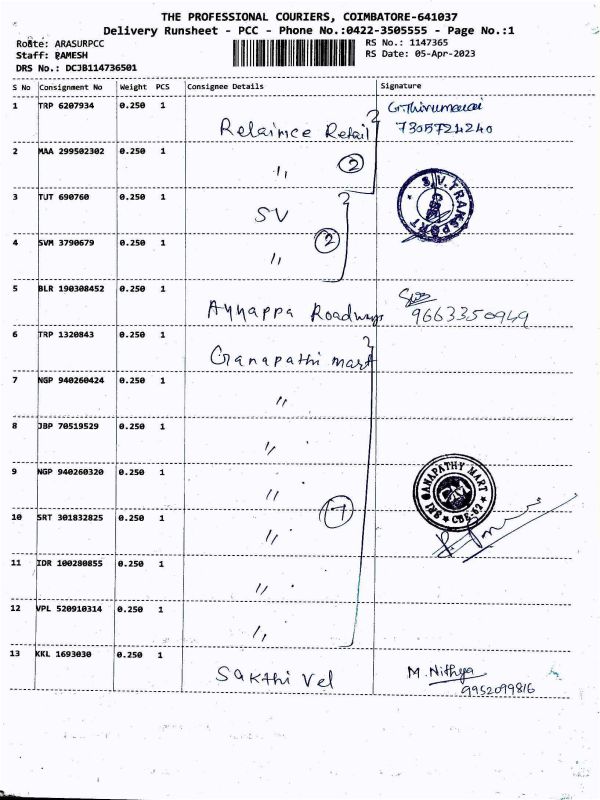 THE PROFESSIONAL COURIERS, COIMBATORE-641037
Delivery Runsheet - PCC - Phone No.:0422-3505555 - Page No.:1
Route: ARASURPCC
RS No.: 1147365
Staff: RAMESH
RS Date: 05-Apr-2023
DRS No.: DCJB114736501
S No Consignment No Weight PCS Consignee Details Signature
1 TRP 6207934 0.250 1
Relaince Retail
7305724240
2 MAA 299502302 0.250 1
" 2
3 TUT 690760 0.250 1
SV
S.V. TRANSPORT
CBE
4 SVM 3790679 0.250 1
" 2
5 BLR 190308452 0.250 1
Ayyappa Roadways 9663350949
6 TRP 1320843 0.250 1
Ganapathi mart
7 NGP 940260424 0.250 1
"
8 JBP 70519529 0.250 1
"
9 NGP 940260320 0.250 1
"
SRI GANAPATHY MART
* CBE-62 *
10 SRT 301832825 0.250 1
" 7
11 IDR 100280855 0.250 1
"
12 VPL 520910314 0.250 1
"
13 KKL 1693030 0.250 1
Sakthi Vel M. Nithya
9952099816